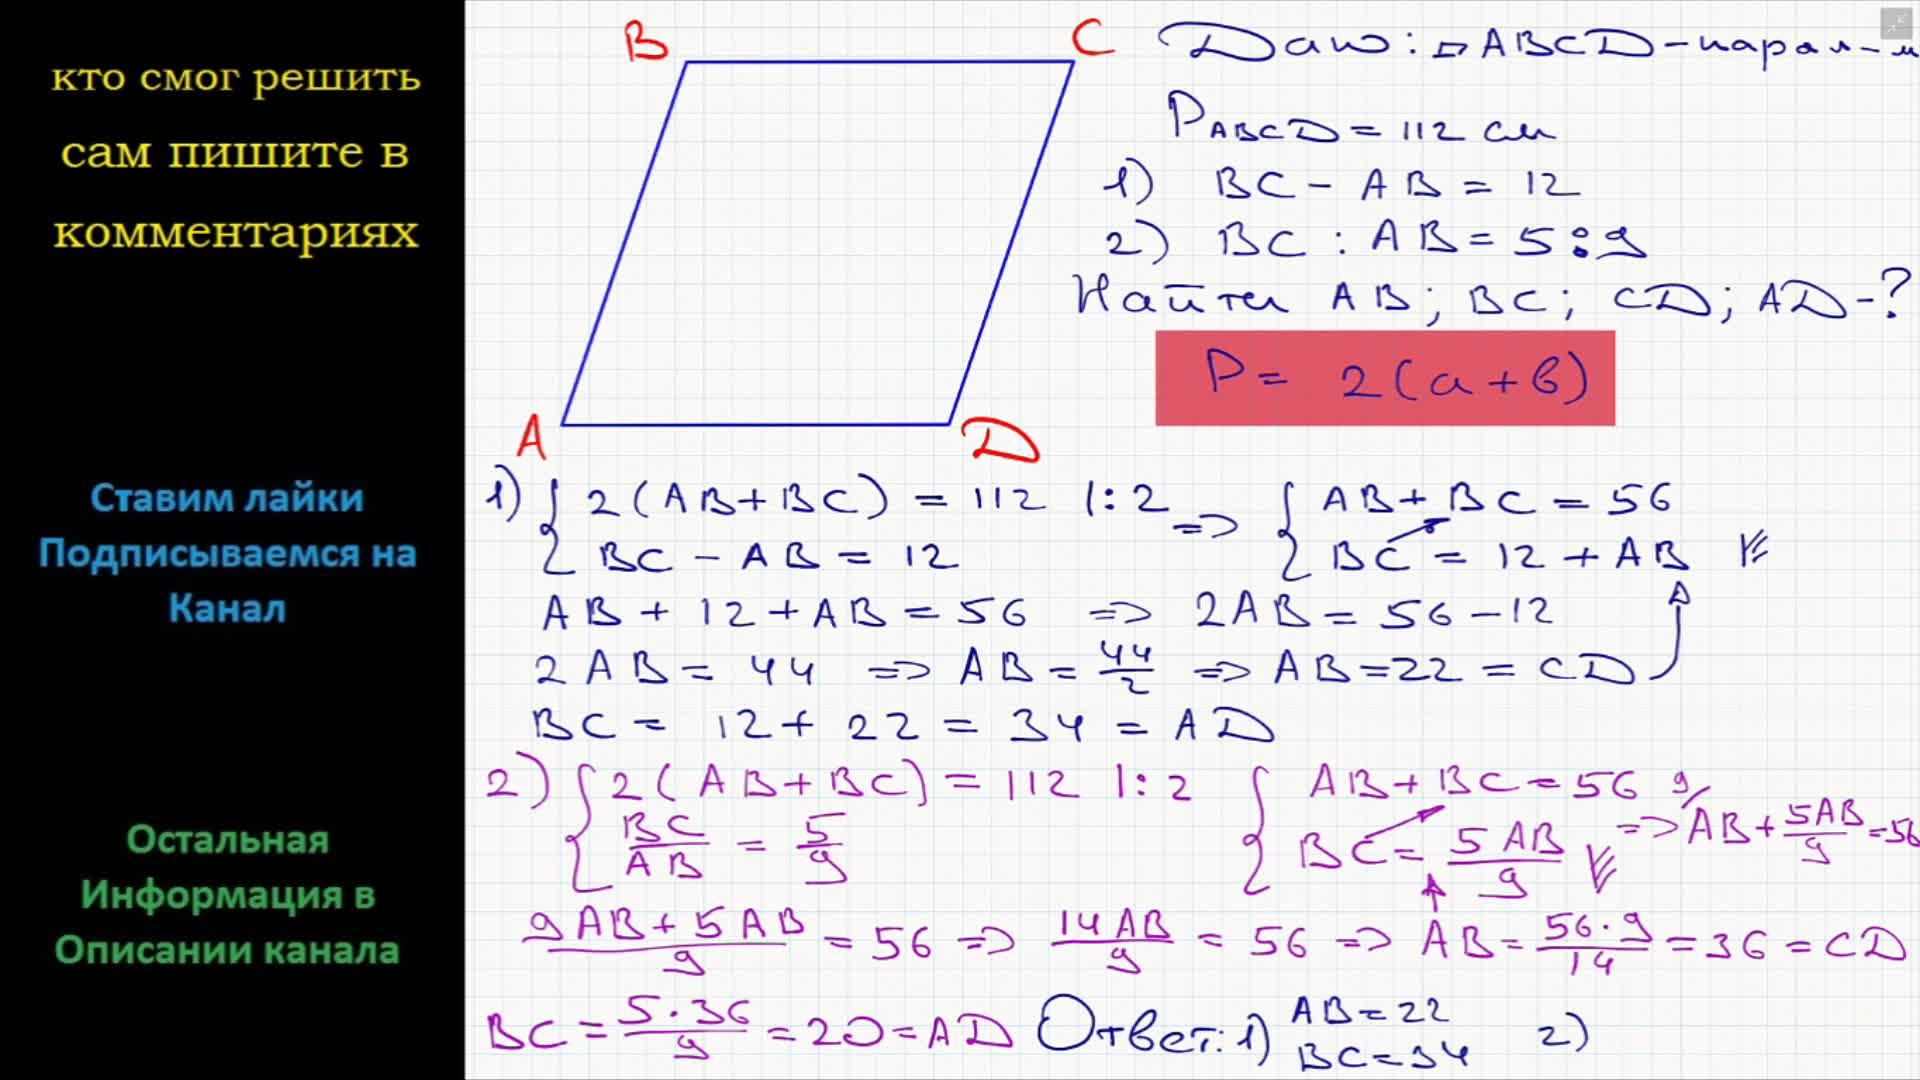 кто смог решить
сам пишите в
комментариях
Ставим лайки
Подписываемся на
Канал
Остальная
Информация в
Описании канала
B
C
A
D
Дано: ▱ABCD-парал-м
P_ABCD = 112 см
1) BC - AB = 12
2) BC : AB = 5 : 9
Найти AB; BC; CD; AD-?
P = 2(a+b)
1) { 2(AB+BC) = 112 |:2 => { AB+BC = 56
BC - AB = 12 BC = 12 + AB
AB + 12 + AB = 56 => 2AB = 56 - 12
2AB = 44 => AB = 44/2 => AB = 22 = CD
BC = 12 + 22 = 34 = AD
2) { 2(AB+BC) = 112 |:2 { AB+BC = 56
BC/AB = 5/9 BC = 5AB/9 => 9/ AB + 5AB/9 = 56
9AB+5AB/9 = 56 => 14AB/9 = 56 => AB = 56·9/14 = 36 = CD
BC = 5·36/9 = 20 = AD Ответ: 1) AB = 22 2)
BC = 34